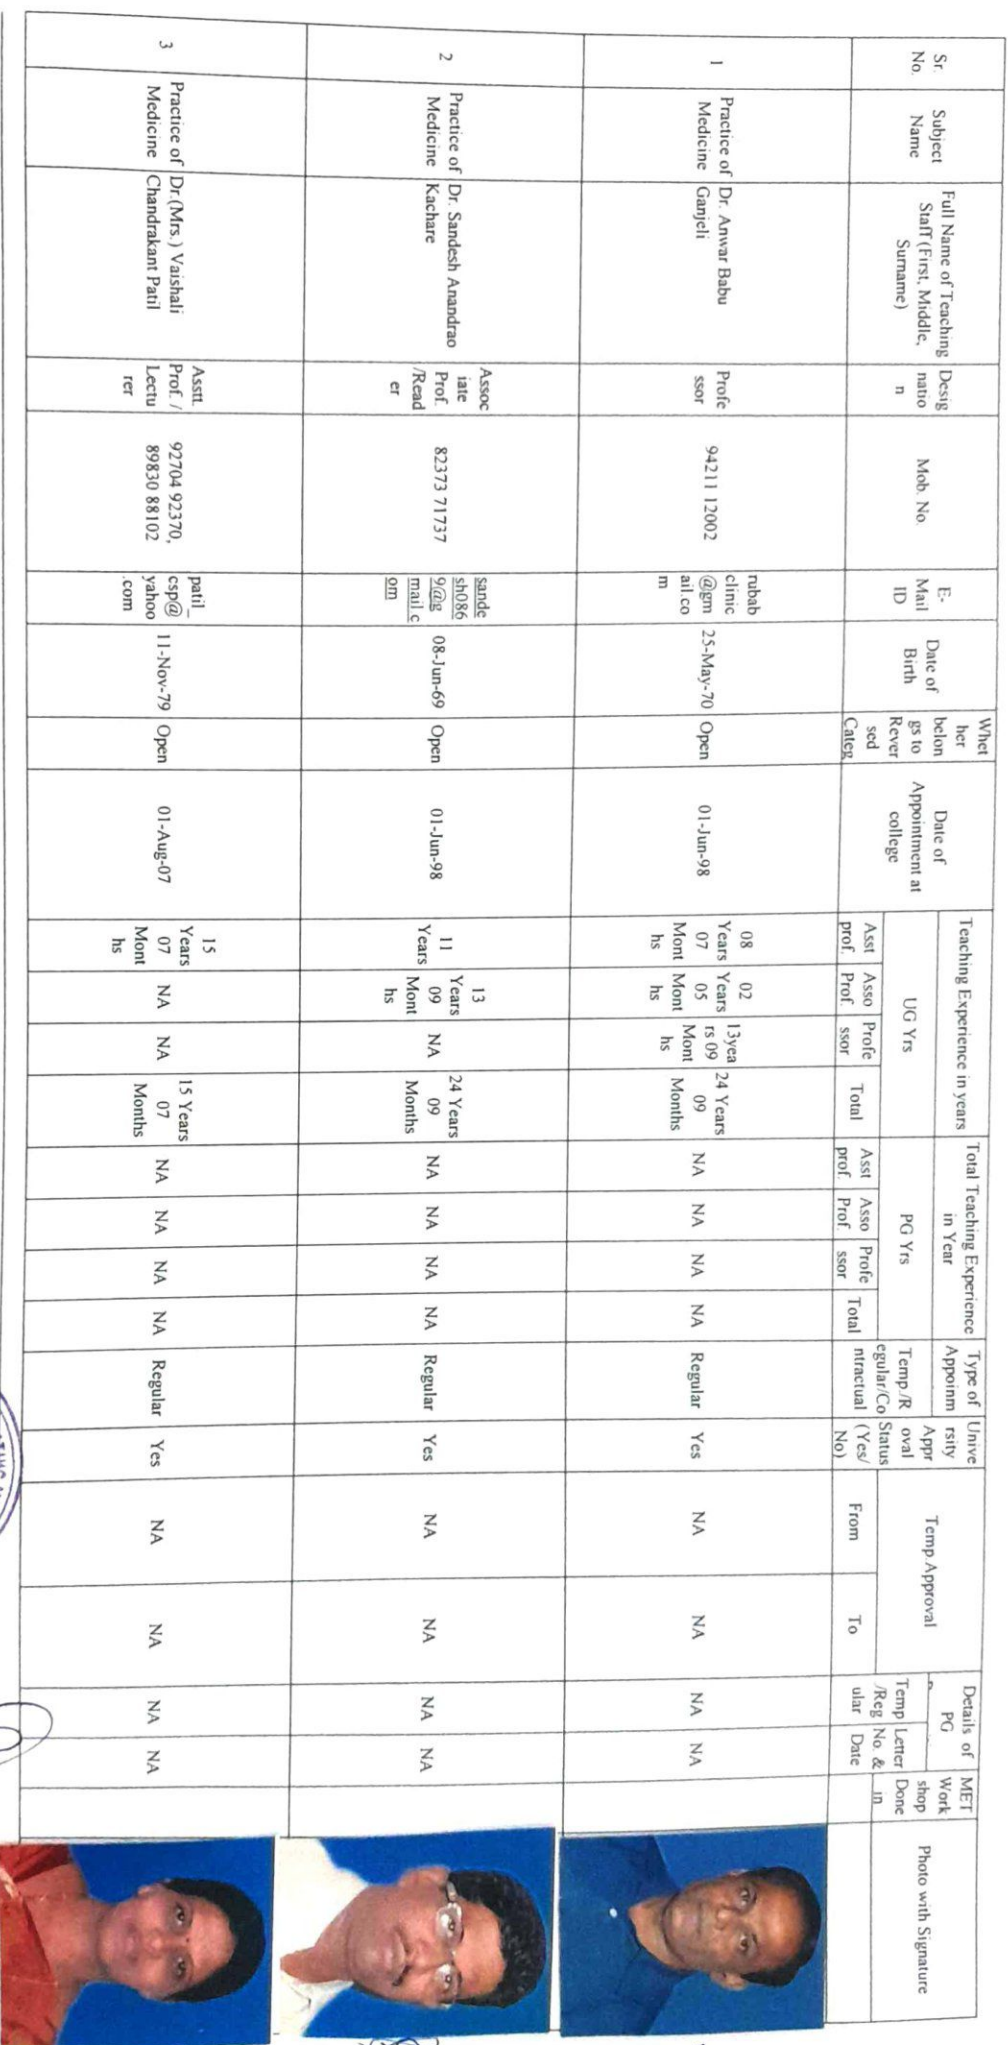 Sr.
No.
Subject
Name
Full Name of Teaching
Staff (First, Middle,
Surname)
Desig
natio
n
Mob. No.
E-
Mail
ID
Date of
Birth
Whet
her
belon
gs to
Rever
sed
Categ
Date of
Appointment at
college
Teaching Experience in years
UG Yrs
Asst
prof.
Asso
Prof.
Profe
ssor
Total
Total Teaching Experience
in Year
PG Yrs
Asst
prof.
Asso
Prof.
Profe
ssor
Total
Type of
Appoinm
Temp./R
egular/Co
ntractual
Unive
rsity
Appr
oval
Status
(Yes/
No)
Temp.Approval
From
To
Details of
PG
Temp
/Reg
ular
Letter
No. &
Date
MET
Work
shop
Done
in
Photo with Signature
1
Practice of
Medicine
Dr. Anwar Babu
Ganjeli
Profe
ssor
94211 12002
rubab
clinic
@gm
ail.co
m
25-May-70
Open
01-Jun-98
08
Years
07
Mont
hs
02
Years
05
Mont
hs
13yea
rs 09
Mont
hs
24 Years
09
Months
NA
NA
NA
NA
Regular
Yes
NA
NA
NA
NA
2
Practice of
Medicine
Dr. Sandesh Anandrao
Kachare
Assoc
iate
Prof.
/Read
er
82373 71737
sande
sh086
9@g
mail.c
om
08-Jun-69
Open
01-Jun-98
11
Years
13
Years
09
Mont
hs
NA
24 Years
09
Months
NA
NA
NA
NA
Regular
Yes
NA
NA
NA
NA
3
Practice of
Medicine
Dr.(Mrs.) Vaishali
Chandrakant Patil
Asstt.
Prof. /
Lectu
rer
92704 92370,
89830 88102
patil_
csp@
yahoo
.com
11-Nov-79
Open
01-Aug-07
15
Years
07
Mont
hs
NA
NA
15 Years
07
Months
NA
NA
NA
NA
Regular
Yes
NA
NA
NA
NA